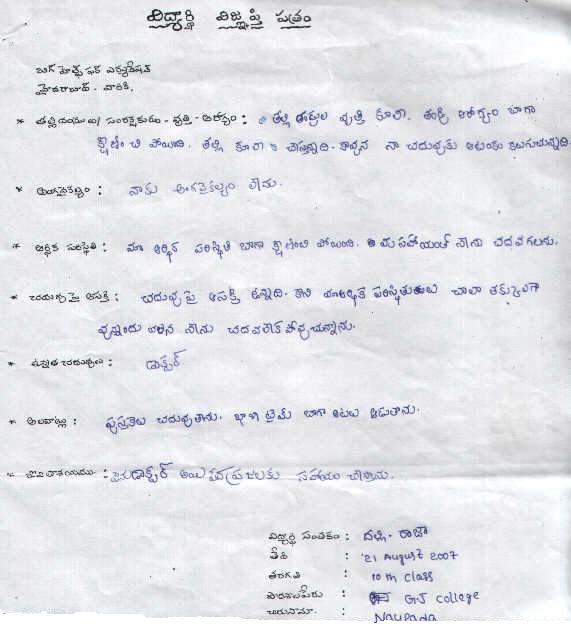 విద్యార్థి విజ్ఞప్తి పత్రం
బిగ్ హెల్ప్ ఫర్ ఎడ్యుకేషన్
హైదరాబాద్ - వారికి,
* తల్లిదండ్రులు/ సంరక్షకుడు - వృత్తి - ఆరోగ్యం : తల్లి తండ్రుల వృత్తి కూలి. తండ్రి ఆరోగ్యం బాగా
క్షీణించి పోయింది. తల్లి కూలి చేస్తున్నది. కావున నా చదువుకు ఆటంకం కలుగుచున్నది.
* అంగవైకల్యం : నాకు అంగవైకల్యం లేదు.
* ఆర్థిక పరిస్థితి : మా ఆర్థిక పరిస్థితి బాగా క్షీణించి పోయింది. మీ సహాయంతో నేను చదవగలను.
* చదువు పై ఆసక్తి : చదువు పై ఆసక్తి ఉన్నది. కాని మా ఆర్థిక పరిస్థితులు చాలా తక్కువగా
వున్నందు వలన నేను చదవలేక పోవుచున్నాను.
* ఉన్నత చదువులు : డాక్టర్
* అలవాట్లు : పుస్తకాలు చదువుతాను. ఖాళీ టైమ్ బాగా ఆటలు ఆడుతాను.
* జీవితాశయము : నేను డాక్టర్ అయి పేద ప్రజలకు సహాయం చేస్తాను.
విద్యార్థి సంతకం : దల్లి. రాజు
తేది : 21 August 2007
తరగతి : 10 th class
పాఠశాల పేరు : GJ college
చిరునామా : Naupada